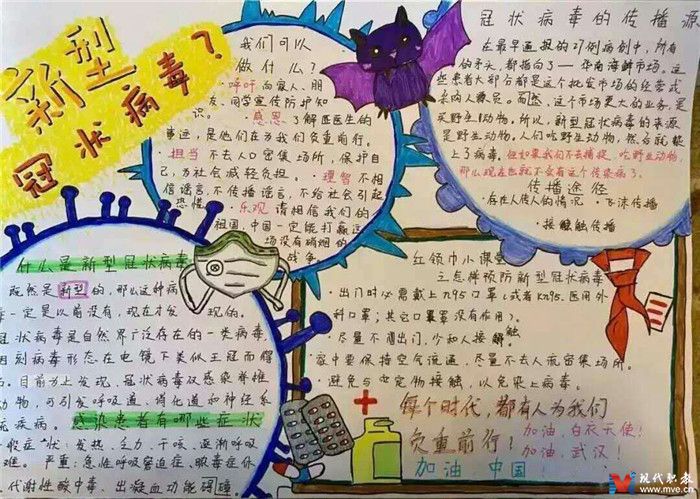 新型
冠状病毒？
我们可以
做什么？
呼吁向家人、朋
友、同学宣传防护知
识。 感恩 了解医医生的
事迹，是他们在为我们负重前行。
担当 不去人口密集场所，保护自
己，为社会减轻负担。 理智 不相
信谣言，不传播谣言，不给社会引起
恐慌。
乐观 请相信我们的
祖国，中国一定能打赢这
场没有硝烟的
战争
冠状病毒的传播源
在最早通报的病例中，所有
的矛头，都指向了一华南海鲜市场。这
些患者大部分都是这个批发市场的经营或
采购人员。而然，这个市场更大的业务，是
买野生动物。所以，新型冠状病毒的来源
是野生动物，人们吃野生动物，然后就患
上了病毒。但如果我们不去捕捉、吃野生动物，
那么现在也就不会有这个传染病了。
传播途径
·存在人传人的情况 ·飞沫传播
·接触触传播
什么是新型冠状病毒
既然是新型的，那么这种病
毒一定是以前没有，现在才发现的。
冠状病毒是自然界广泛存在的一类病毒，
因病毒形态在电镜下类似王冠而得
目前为止发现，冠状病毒仅感染脊椎
动物，可引发呼吸道、消化道和神经系
统疾病。感染患者有哪些症状
一般症状：发热、乏力、干咳、逐渐呼吸
难。 严重：急性呼吸窘迫症、脓毒症休
代谢性酸中毒、出凝血功能障碍
红领巾小课堂
之怎样预防新型冠状病毒
·出门时必需戴上N95口罩（或者KN95、医用外
科口罩；其它口罩没有作用）。
·尽量不用出门，少和人接触
家中要保持空气流通，尽量不去人流密集场所。
避免与动物接触，以免染上病毒。
每个时代，都有人为我们
负重前行！ 加油，白衣天使！
加油，武汉！
加油 中国！
现代职教
www.mve.cn